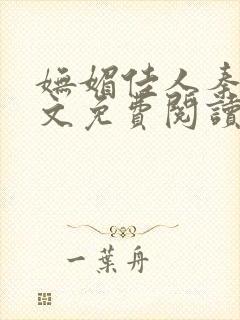 嫵媚佳人秦
文免費閱讀
一葉舟